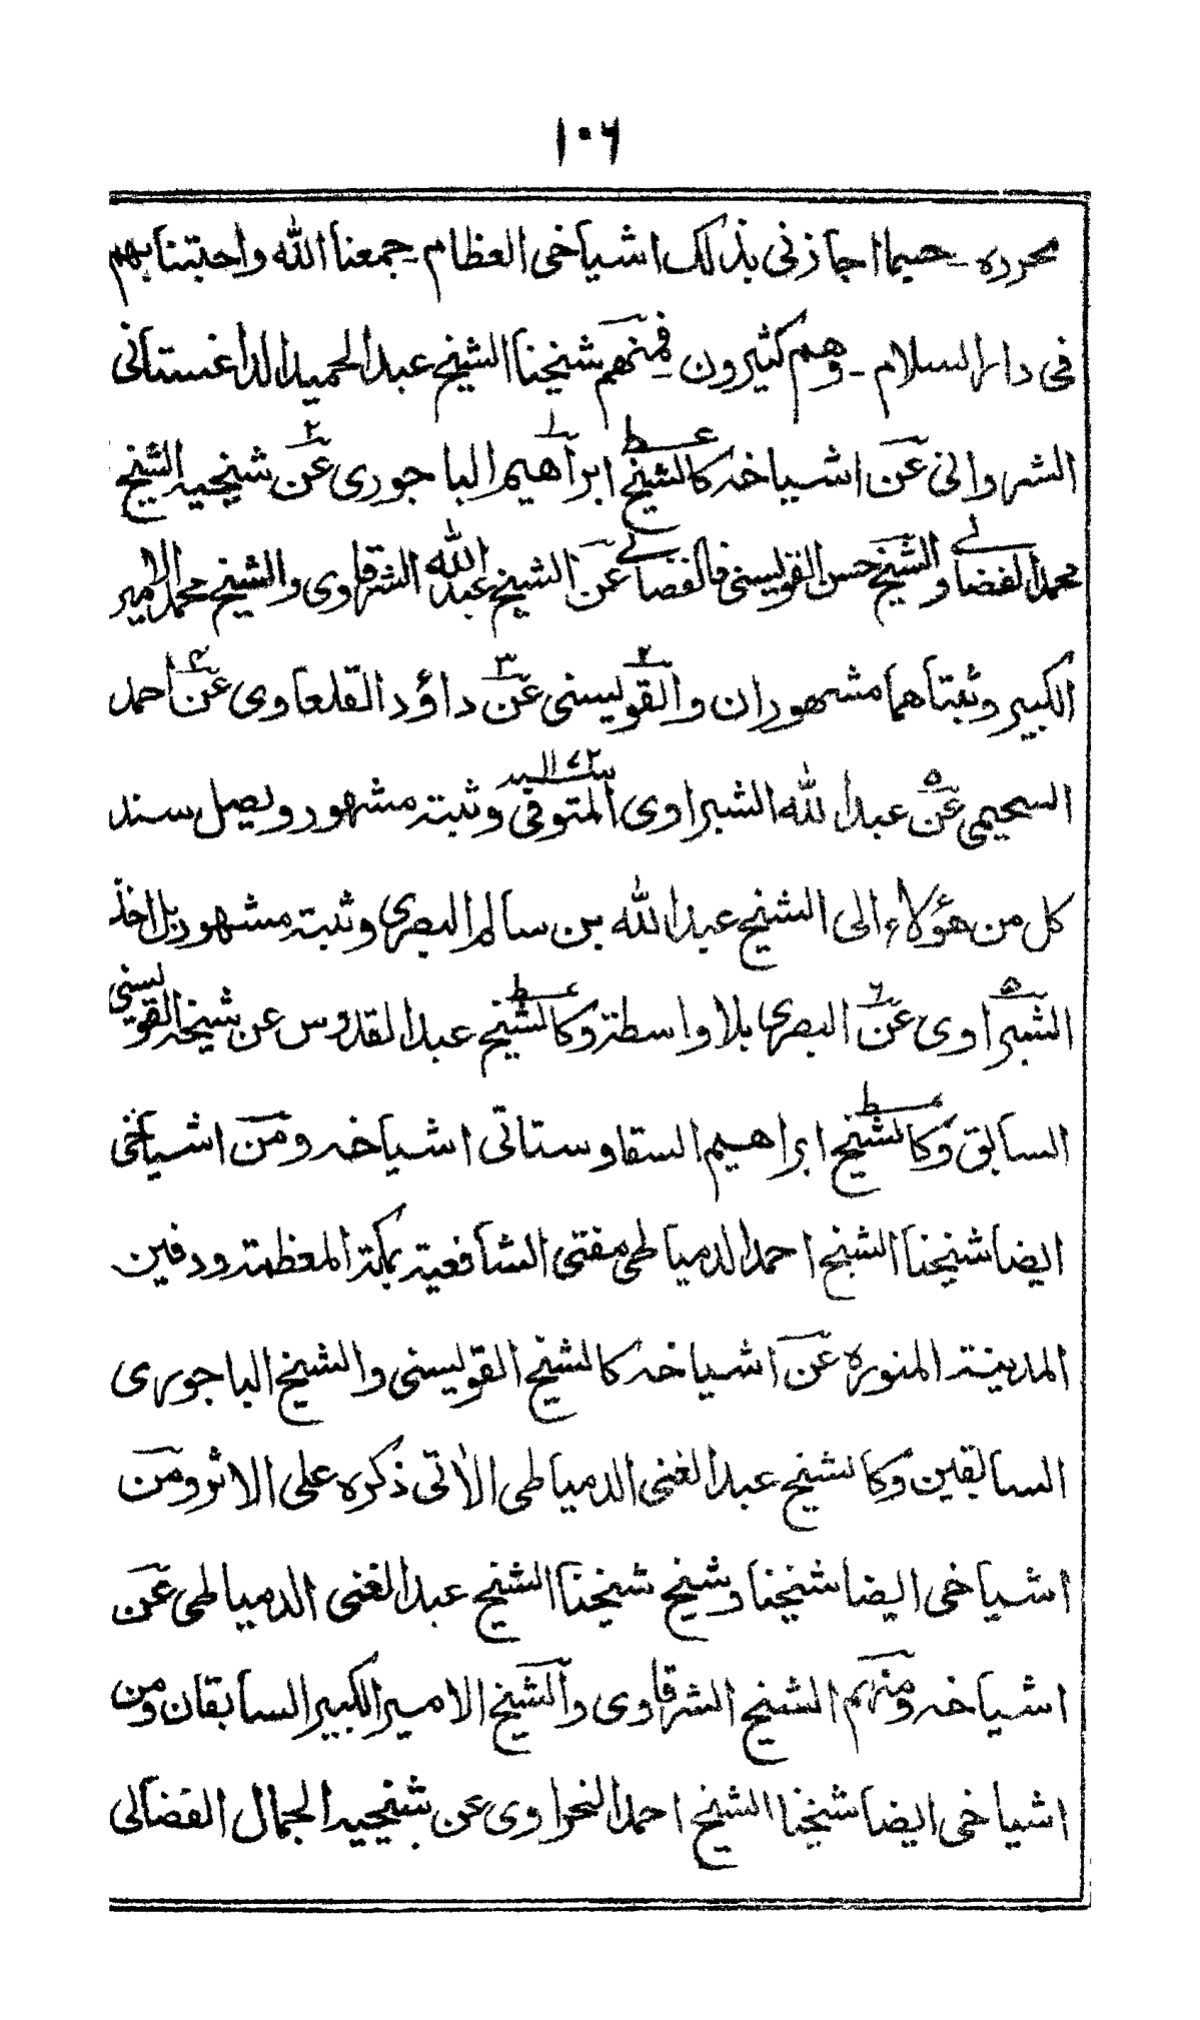 ١٠٦
محررہ۔ حيما اجازنى بذلك اشياخى العظام۔ جمعنا الله واحبتنا بهم
فى دار السلام۔ وهم كثيرون۔ فمنهم شيخنا الشيخ عبد الحميد الداغستانى
الشروانى عن اشياخہ كالشيخ ابراهيم الباجورى عن شيخيہ الشيخ
محمد الفضالى والشيخ حسن القويسنى فالفضالى عن الشيخ عبد الله الشرقاوى والشيخ محمد الامير
الكبير وثبتاهما مشهوران والقويسنى عن داؤد القلعاوى عن احمد
السحيمى عن عبد الله الشبراوى المتوفى وثبتہ مشهور ويصل سند
كل من هؤلاء الى الشيخ عبد الله بن سالم البصرى وثبتہ مشهور بل اخذ
الشبراوى عن البصرى بلا واسطة وكالشيخ عبد القدوس عن شيخہ القويسنى
السابق وكالشيخ ابراهيم السقا وستاتى اشياخہ ومن اشياخى
ايضا شيخنا الشيخ احمد الدمياطى مفتى الشافعية بمكة المعظمة ودفين
المدينة المنورہ عن اشياخہ كالشيخ القويسنى والشيخ الباجورى
السابقين وكالشيخ عبد الغنى الدمياطى الآتى ذكرہ على الاثر ومن
اشياخى ايضا شيخنا وشيخ شيخنا الشيخ عبد الغنى الدمياطى عن
اشياخہ ومنهم الشيخ الشرقاوى والشيخ الامير الكبير السابقان ومن
اشياخى ايضا شيخنا الشيخ احمد النحراوى عن شيخيہ الجمال الفضالى